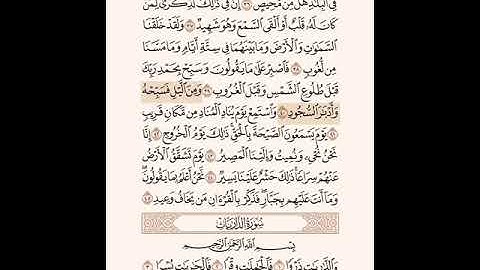 فِي ٱلۡبِلَٰدِ هَلۡ مِن مَّحِيصٍ ٣٦ إِنَّ فِي ذَٰلِكَ لَذِكۡرَىٰ لِمَن
كَانَ لَهُۥ قَلۡبٌ أَوۡ أَلۡقَى ٱلسَّمۡعَ وَهُوَ شَهِيدٌ ٣٧ وَلَقَدۡ خَلَقۡنَا
ٱلسَّمَٰوَٰتِ وَٱلۡأَرۡضَ وَمَا بَيۡنَهُمَا فِي سِتَّةِ أَيَّامٍ وَمَا مَسَّنَا
مِن لُّغُوبٍ ٣٨ فَٱصۡبِرۡ عَلَىٰ مَا يَقُولُونَ وَسَبِّحۡ بِحَمۡدِ رَبِّكَ
قَبۡلَ طُلُوعِ ٱلشَّمۡسِ وَقَبۡلَ ٱلۡغُرُوبِ ٣٩ وَمِنَ ٱلَّيۡلِ فَسَبِّحۡهُ
وَأَدۡبَٰرَ ٱلسُّجُودِ ٤٠ وَٱسۡتَمِعۡ يَوۡمَ يُنَادِ ٱلۡمُنَادِ مِن مَّكَانٍ قَرِيبٍ
٤١ يَوۡمَ يَسۡمَعُونَ ٱلصَّيۡحَةَ بِٱلۡحَقِّ ذَٰلِكَ يَوۡمُ ٱلۡخُرُوجِ ٤٢ إِنَّا
نَحۡنُ نُحۡيِۦ وَنُمِيتُ وَإِلَيۡنَا ٱلۡمَصِيرُ ٤٣ يَوۡمَ تَشَقَّقُ ٱلۡأَرۡضُ
عَنۡهُمۡ سِرَاعٗا ذَٰلِكَ حَشۡرٌ عَلَيۡنَا يَسِيرٌ ٤٤ نَّحۡنُ أَعۡلَمُ بِمَا يَقُولُونَ
وَمَآ أَنتَ عَلَيۡهِم بِجَبَّارٖ فَذَكِّرۡ بِٱلۡقُرۡءَانِ مَن يَخَافُ وَعِيدِ ٤٥
سُورَةُ الذَّارِيَاتِ
بِسۡمِ ٱللَّهِ ٱلرَّحۡمَٰنِ ٱلرَّحِيمِ
وَٱلذَّٰرِيَٰتِ ذَرۡوٗا ١ فَٱلۡحَٰمِلَٰتِ وِقۡرٗا ٢ فَٱلۡجَٰرِيَٰتِ يُسۡرٗا ٣